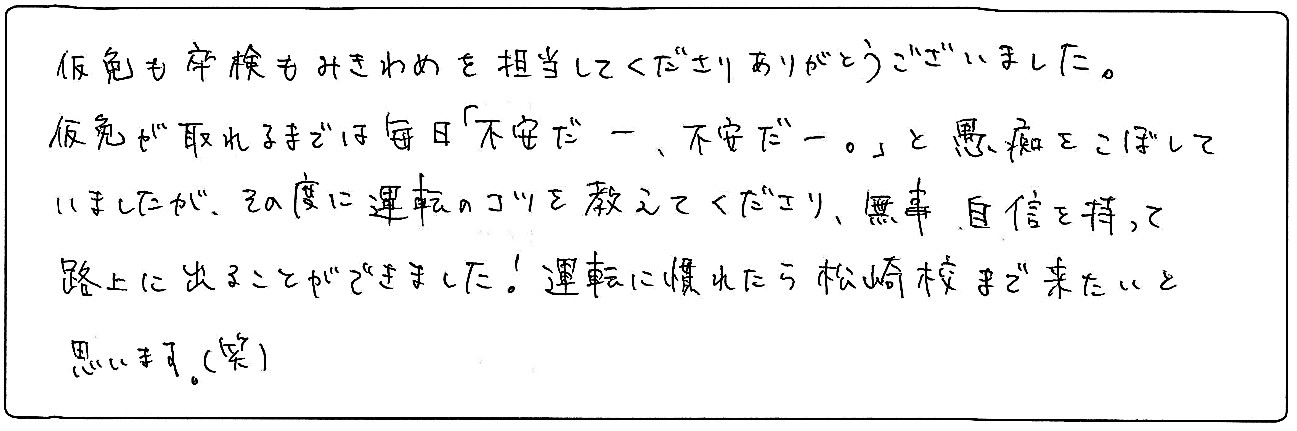 仮免も卒検もみきわめを担当してくださりありがとうございました。
仮免が取れるまでは毎日「不安だー、不安だー。」と愚痴をこぼして
いましたが、その度に運転のコツを教えてくださり、無事 自信を持って
路上に出ることができました！運転に慣れたら松崎校まで来たいと
思います。(笑)